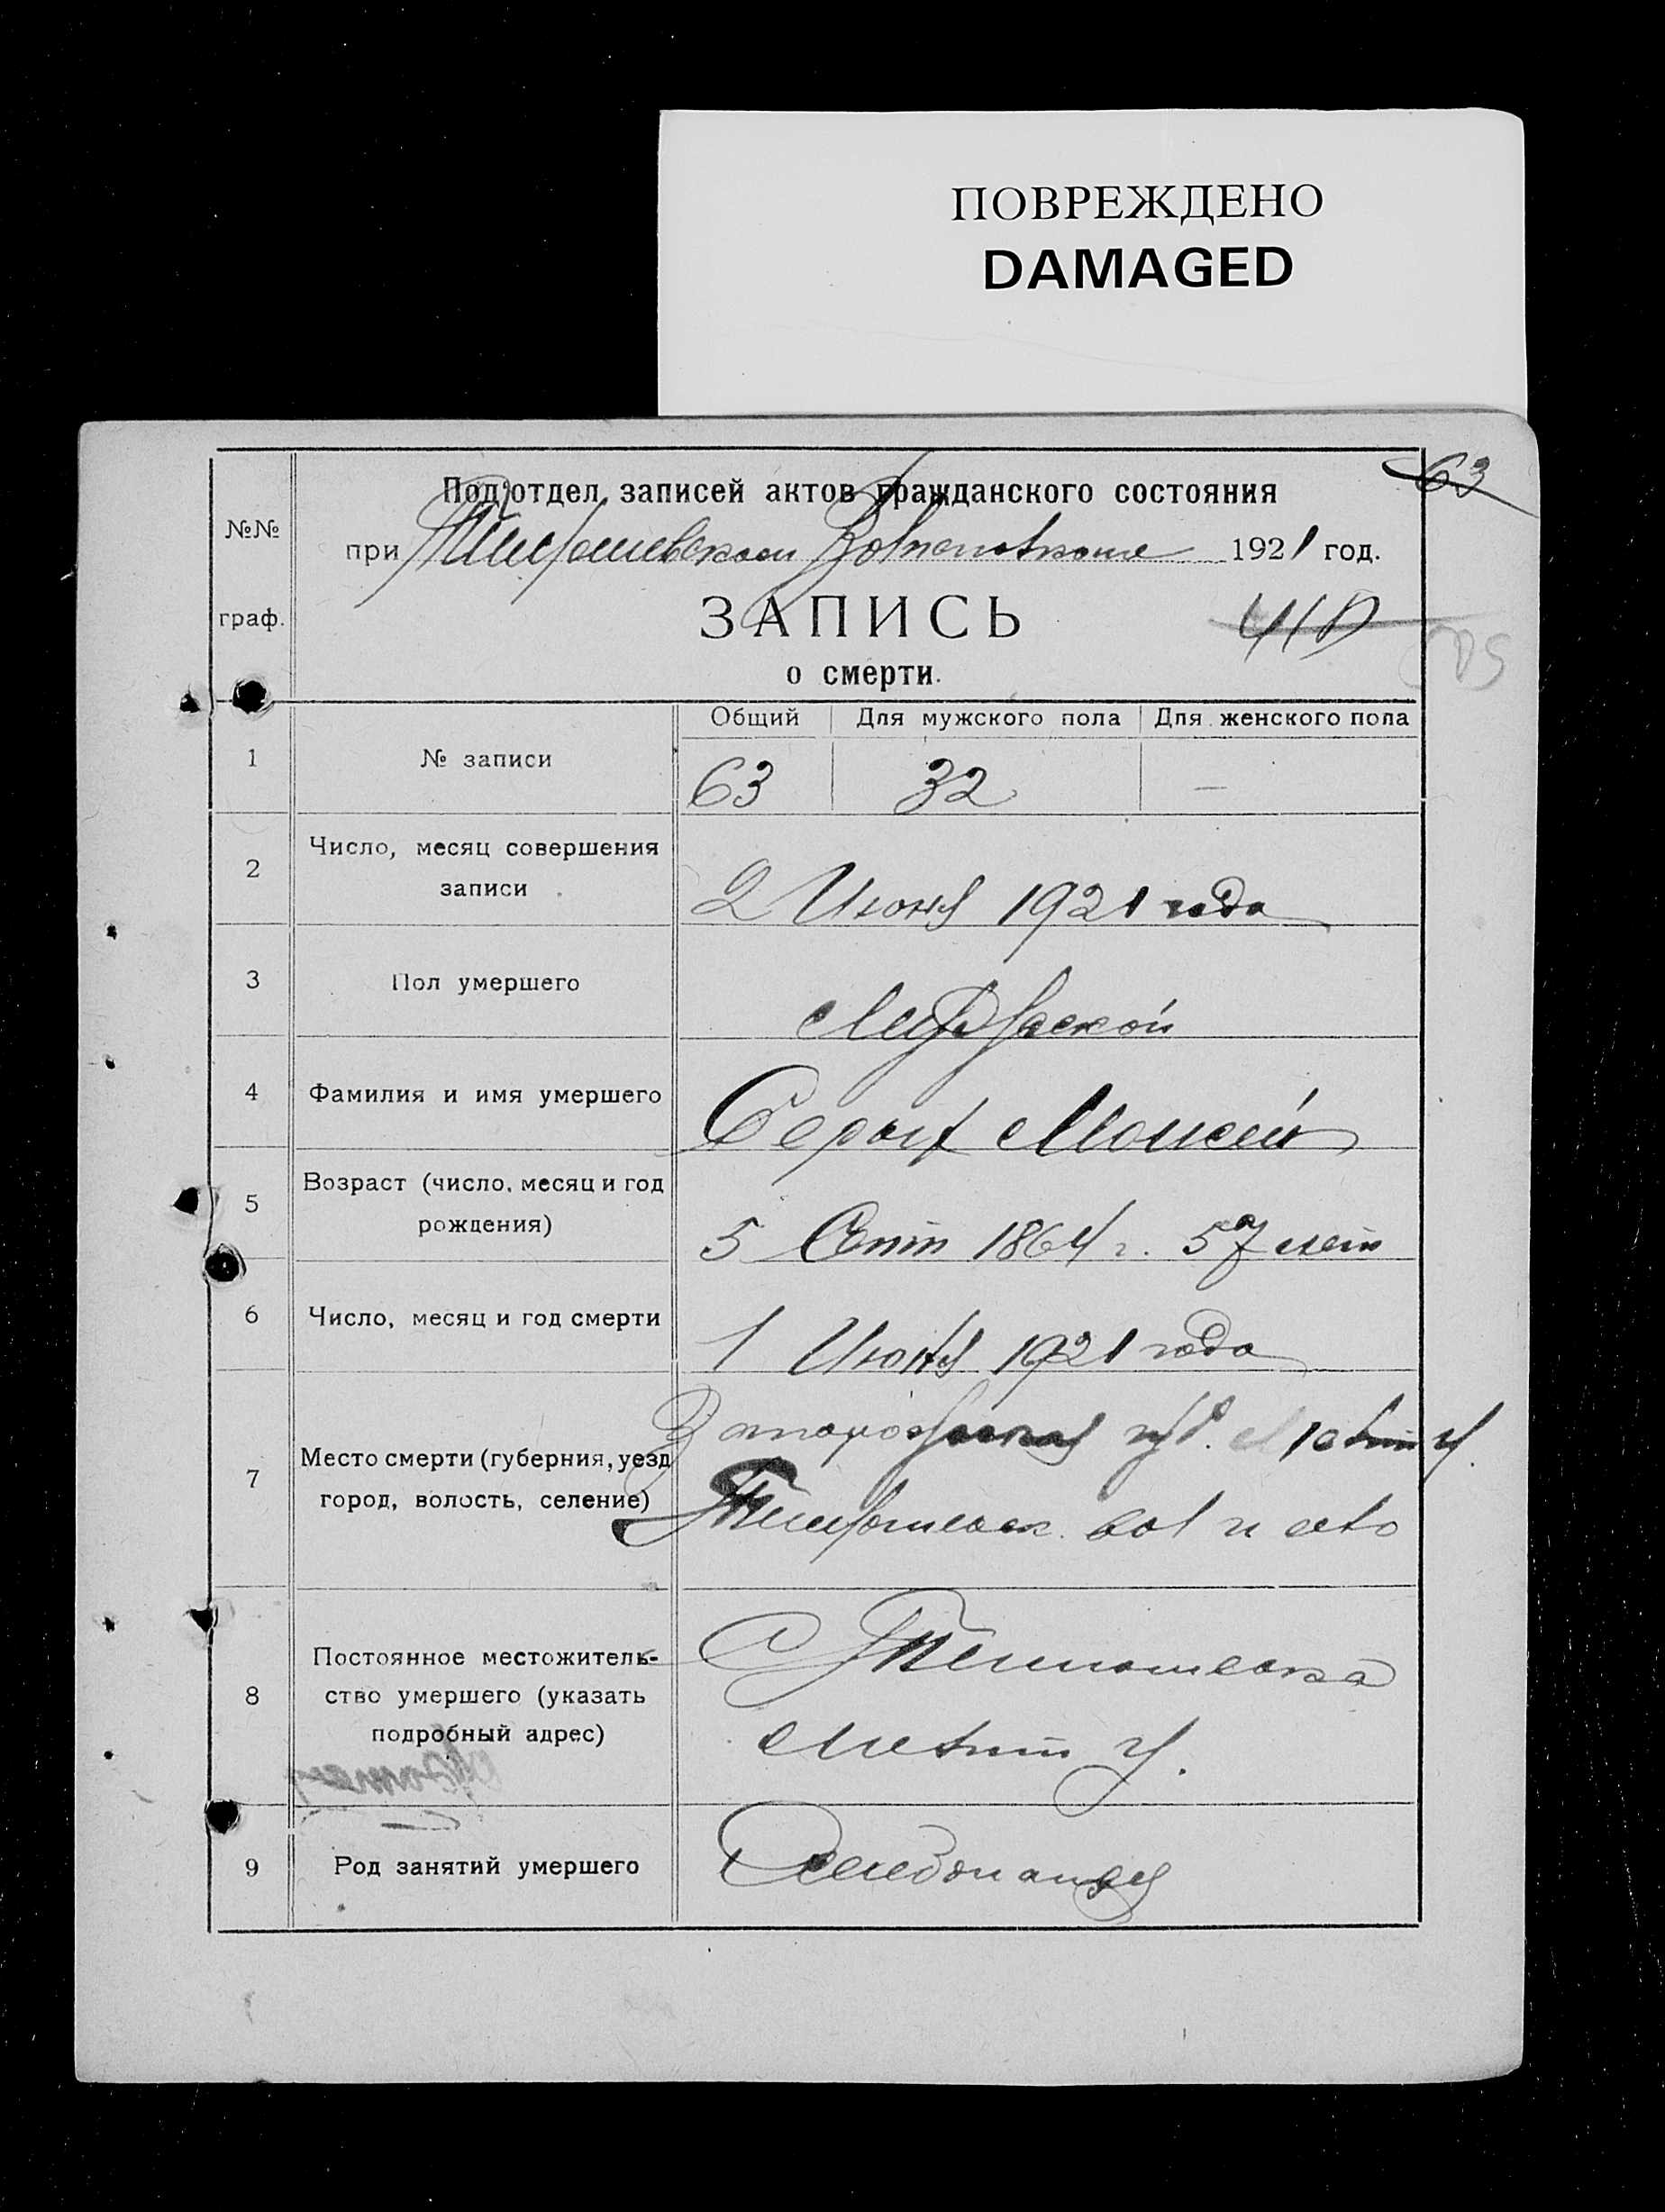 ПОВРЕЖДЕНО
DAMAGED
63
Подотдел записей актов гражданского состояния
№№
при Волисполкоме 1921 год.
граф.
ЗАПИСЬ
о смерти.
Общий Для мужского пола Для женского пола
1 № записи 63 32 —
2 Число, месяц совершения
записи
2 Июня 1921 года
3 Пол умершего Мужской
4 Фамилия и имя умершего Серых Моисей
5 Возраст (число, месяц и год
рождения)
5 Сент 1864 г. 57 лет
6 Число, месяц и год смерти 1 Июня 1921 года
7 Место смерти (губерния, уезд
город, волость, селение)
Запорожская губ. Мелит у.
вол и село
8 Постоянное местожитель-
ство умершего (указать
подробный адрес)
С
Мелит у.
9 Род занятий умершего